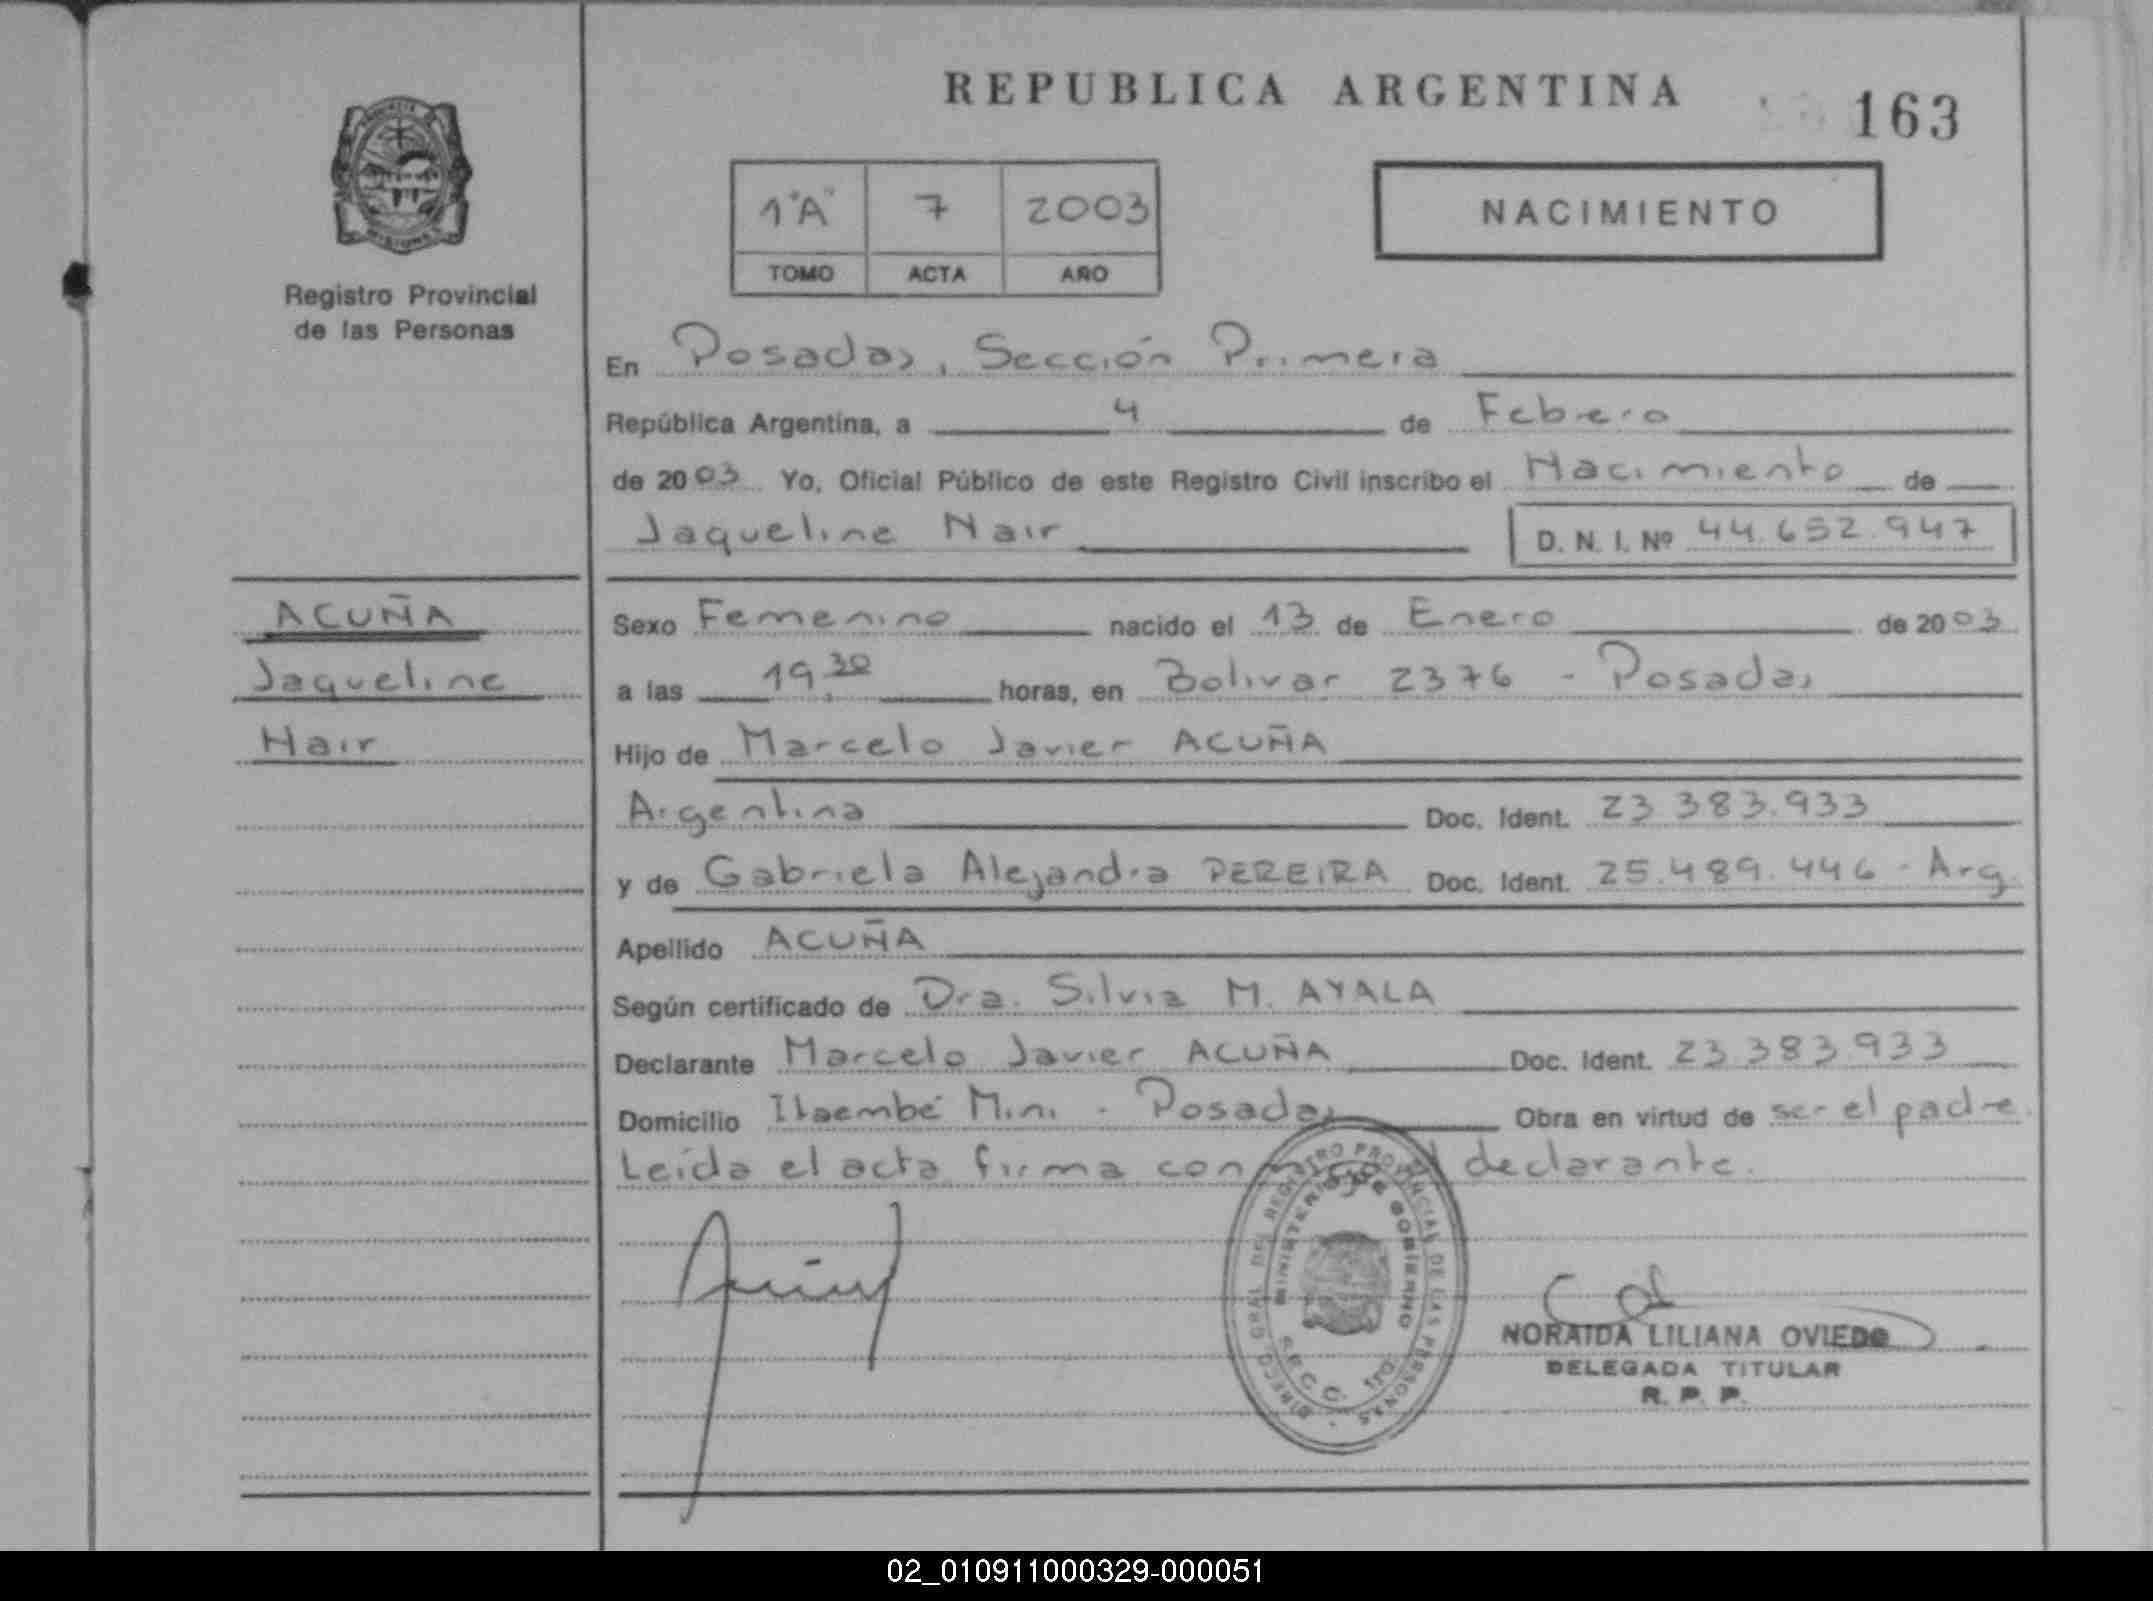 REPUBLICA ARGENTINA
163
1"A" 7 2003
TOMO ACTA AÑO
NACIMIENTO
Registro Provincial
de las Personas
En Posadas, Sección Primera
República Argentina, a 4 de Febrero
de 2003 Yo, Oficial Público de este Registro Civil inscribo el Nacimiento de
Jaqueline Nair D. N. I. Nº 44.652.947
ACUÑA
Jaqueline
Nair
Sexo Femenino nacido el 13 de Enero de 2003
a las 19,30 horas, en Bolivar 2376 - Posadas
Hijo de Marcelo Javier ACUÑA
Argentina Doc. Ident. 23.383.933
y de Gabriela Alejandra PEREIRA Doc. Ident. 25.489.446 - Arg.
Apellido ACUÑA
Según certificado de Dra. Silvia M. AYALA
Declarante Marcelo Javier ACUÑA Doc. Ident. 23.383.933
Domicilio Itaembé Mini - Posadas Obra en virtud de ser el padre.
Leída el acta firma declarante.
REGISTRO PROVINCIAL DE LAS PERSONAS
MINISTERIO DE GOBIERNO
NORAIDA LILIANA OVIEDO
DELEGADA TITULAR
R. P. P.
02_010911000329-000051